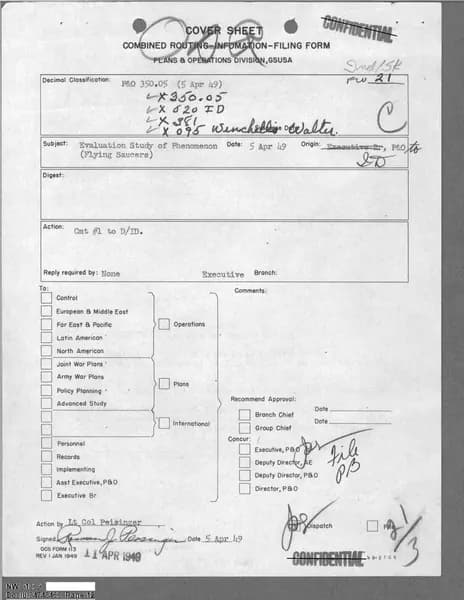 COVER SHEET
CONFIDENTIAL
COMBINED ROUTING-INFOMATION-FILING FORM
PLANS & OPERATIONS DIVISION, GSUSA
21
Decimal Classification: P&O 350.05 (5 Apr 49)
✓X 350.05
✓X 020 ID
✓X 381
✓X 095 Winchell, Walter.
C
Subject: Evaluation Study of Phenomenon (Flying Saucers) Date: 5 Apr 49 Origin: Executive Br, P&O to
ID
Digest:
Action: Cmt #1 to D/ID.
Reply required by: None Executive Branch:
To: Comments:
Control
European & Middle East
Far East & Pacific Operations
Latin American
North American
Joint War Plans
Army War Plans Plans
Policy Planning
Advanced Study
Recommend Approval:
Branch Chief Date
International Group Chief Date
Concur:
Personnel Executive, P&O
Records Deputy Director, AE
Implementing Deputy Director, P&O
Asst Executive, P&O Director, P&O
Executive Br
File
PB
Action by Lt Col Peisinger
Signed Date 5 Apr 49
Dispatch
GOS FORM 113
REV 1 JAN 1949
11 APR 1949
CONFIDENTIAL
1/3